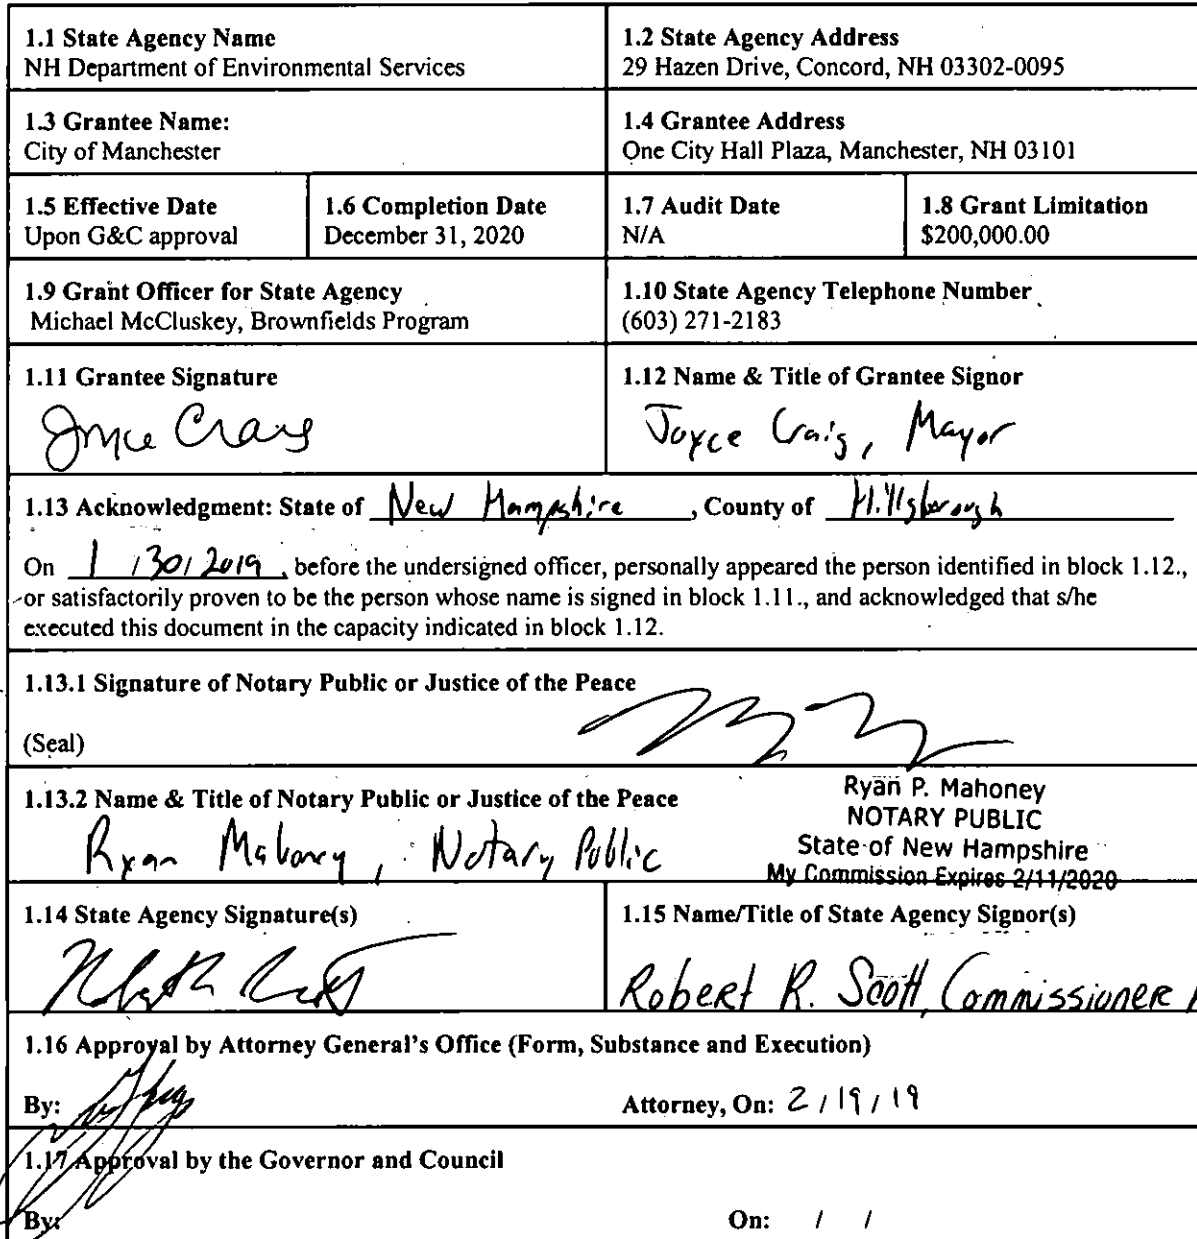 1.1 State Agency Name
NH Department of Environmental Services
1.2 State Agency Address
29 Hazen Drive, Concord, NH 03302-0095
1.3 Grantee Name:
City of Manchester
1.4 Grantee Address
One City Hall Plaza, Manchester, NH 03101
1.5 Effective Date
Upon G&C approval
1.6 Completion Date
December 31, 2020
1.7 Audit Date
N/A
1.8 Grant Limitation
$200,000.00
1.9 Grant Officer for State Agency
Michael McCluskey, Brownfields Program
1.10 State Agency Telephone Number
(603) 271-2183
1.11 Grantee Signature
Joyce Craig
1.12 Name & Title of Grantee Signor
Joyce Craig, Mayor
1.13 Acknowledgment: State of New Hampshire, County of Hillsborough
On 1 / 30 / 2019, before the undersigned officer, personally appeared the person identified in block 1.12.,
or satisfactorily proven to be the person whose name is signed in block 1.11., and acknowledged that s/he
executed this document in the capacity indicated in block 1.12.
1.13.1 Signature of Notary Public or Justice of the Peace
(Seal)
1.13.2 Name & Title of Notary Public or Justice of the Peace
Ryan Mahoney, Notary Public
Ryan P. Mahoney
NOTARY PUBLIC
State of New Hampshire
My Commission Expires 2/11/2020
1.14 State Agency Signature(s)
1.15 Name/Title of State Agency Signor(s)
Robert R. Scott, Commissioner
1.16 Approval by Attorney General's Office (Form, Substance and Execution)
By:
Attorney, On: 2 / 19 / 19
1.17 Approval by the Governor and Council
By:
On: / /